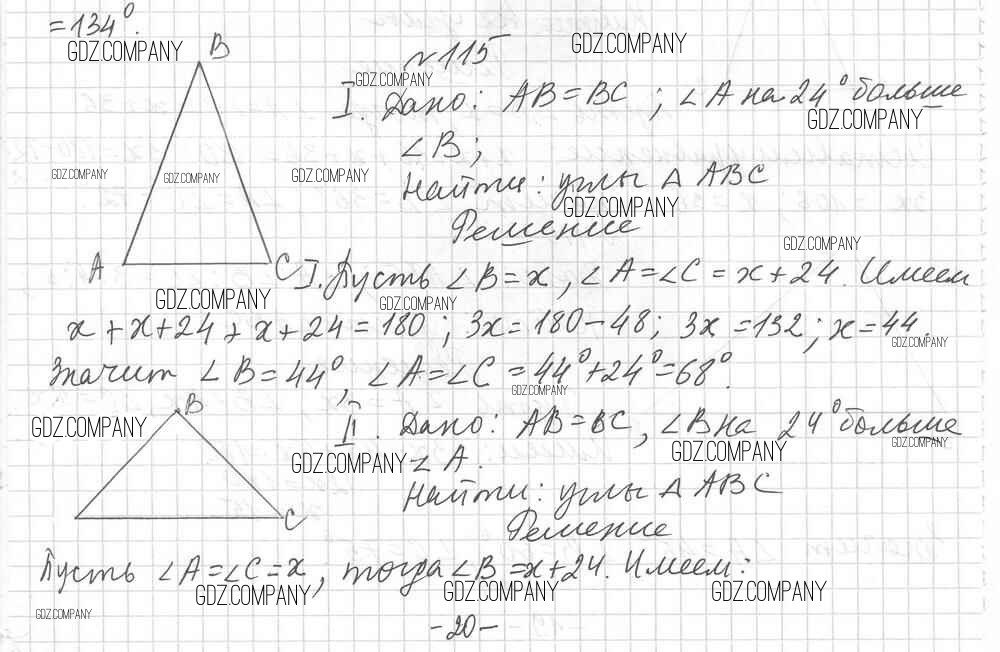 =134°.
GDZ.COMPANY
B
№115
GDZ.COMPANY
GDZ.COMPANY
I. Дано: AB=BC; ∠A на 24° больше
GDZ.COMPANY
∠B;
GDZ.COMPANY GDZ.COMPANY GDZ.COMPANY
Найти: углы △ ABC
GDZ.COMPANY
Решение
GDZ.COMPANY
A C
I. Пусть ∠B=x, ∠A=∠C=x+24. Имеем
GDZ.COMPANY GDZ.COMPANY
x+x+24+x+24=180; 3x=180-48; 3x=132; x=44.
GDZ.COMPANY
Значит ∠B=44°, ∠A=∠C=44°+24°=68°.
GDZ.COMPANY
B
II. Дано: AB=BC, ∠B на 24° больше
GDZ.COMPANY GDZ.COMPANY GDZ.COMPANY
∠A.
GDZ.COMPANY
Найти: углы △ ABC
C
Решение
Пусть ∠A=∠C=x, тогда ∠B=x+24. Имеем:
GDZ.COMPANY GDZ.COMPANY GDZ.COMPANY
GDZ.COMPANY
-20-